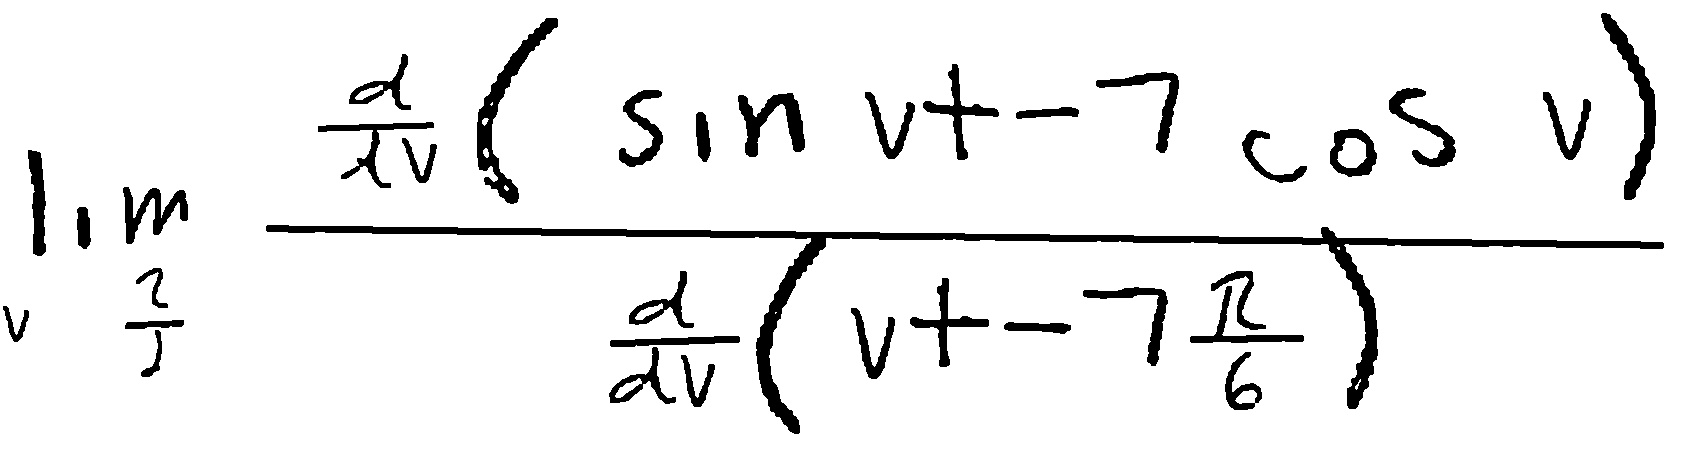 \lim_{v \frac{2}{J}} \frac{\frac{d}{dv}\left(\sin v + -7 \cos v\right)}{\frac{d}{dv}\left(v + -7 \frac{\pi}{6}\right)}